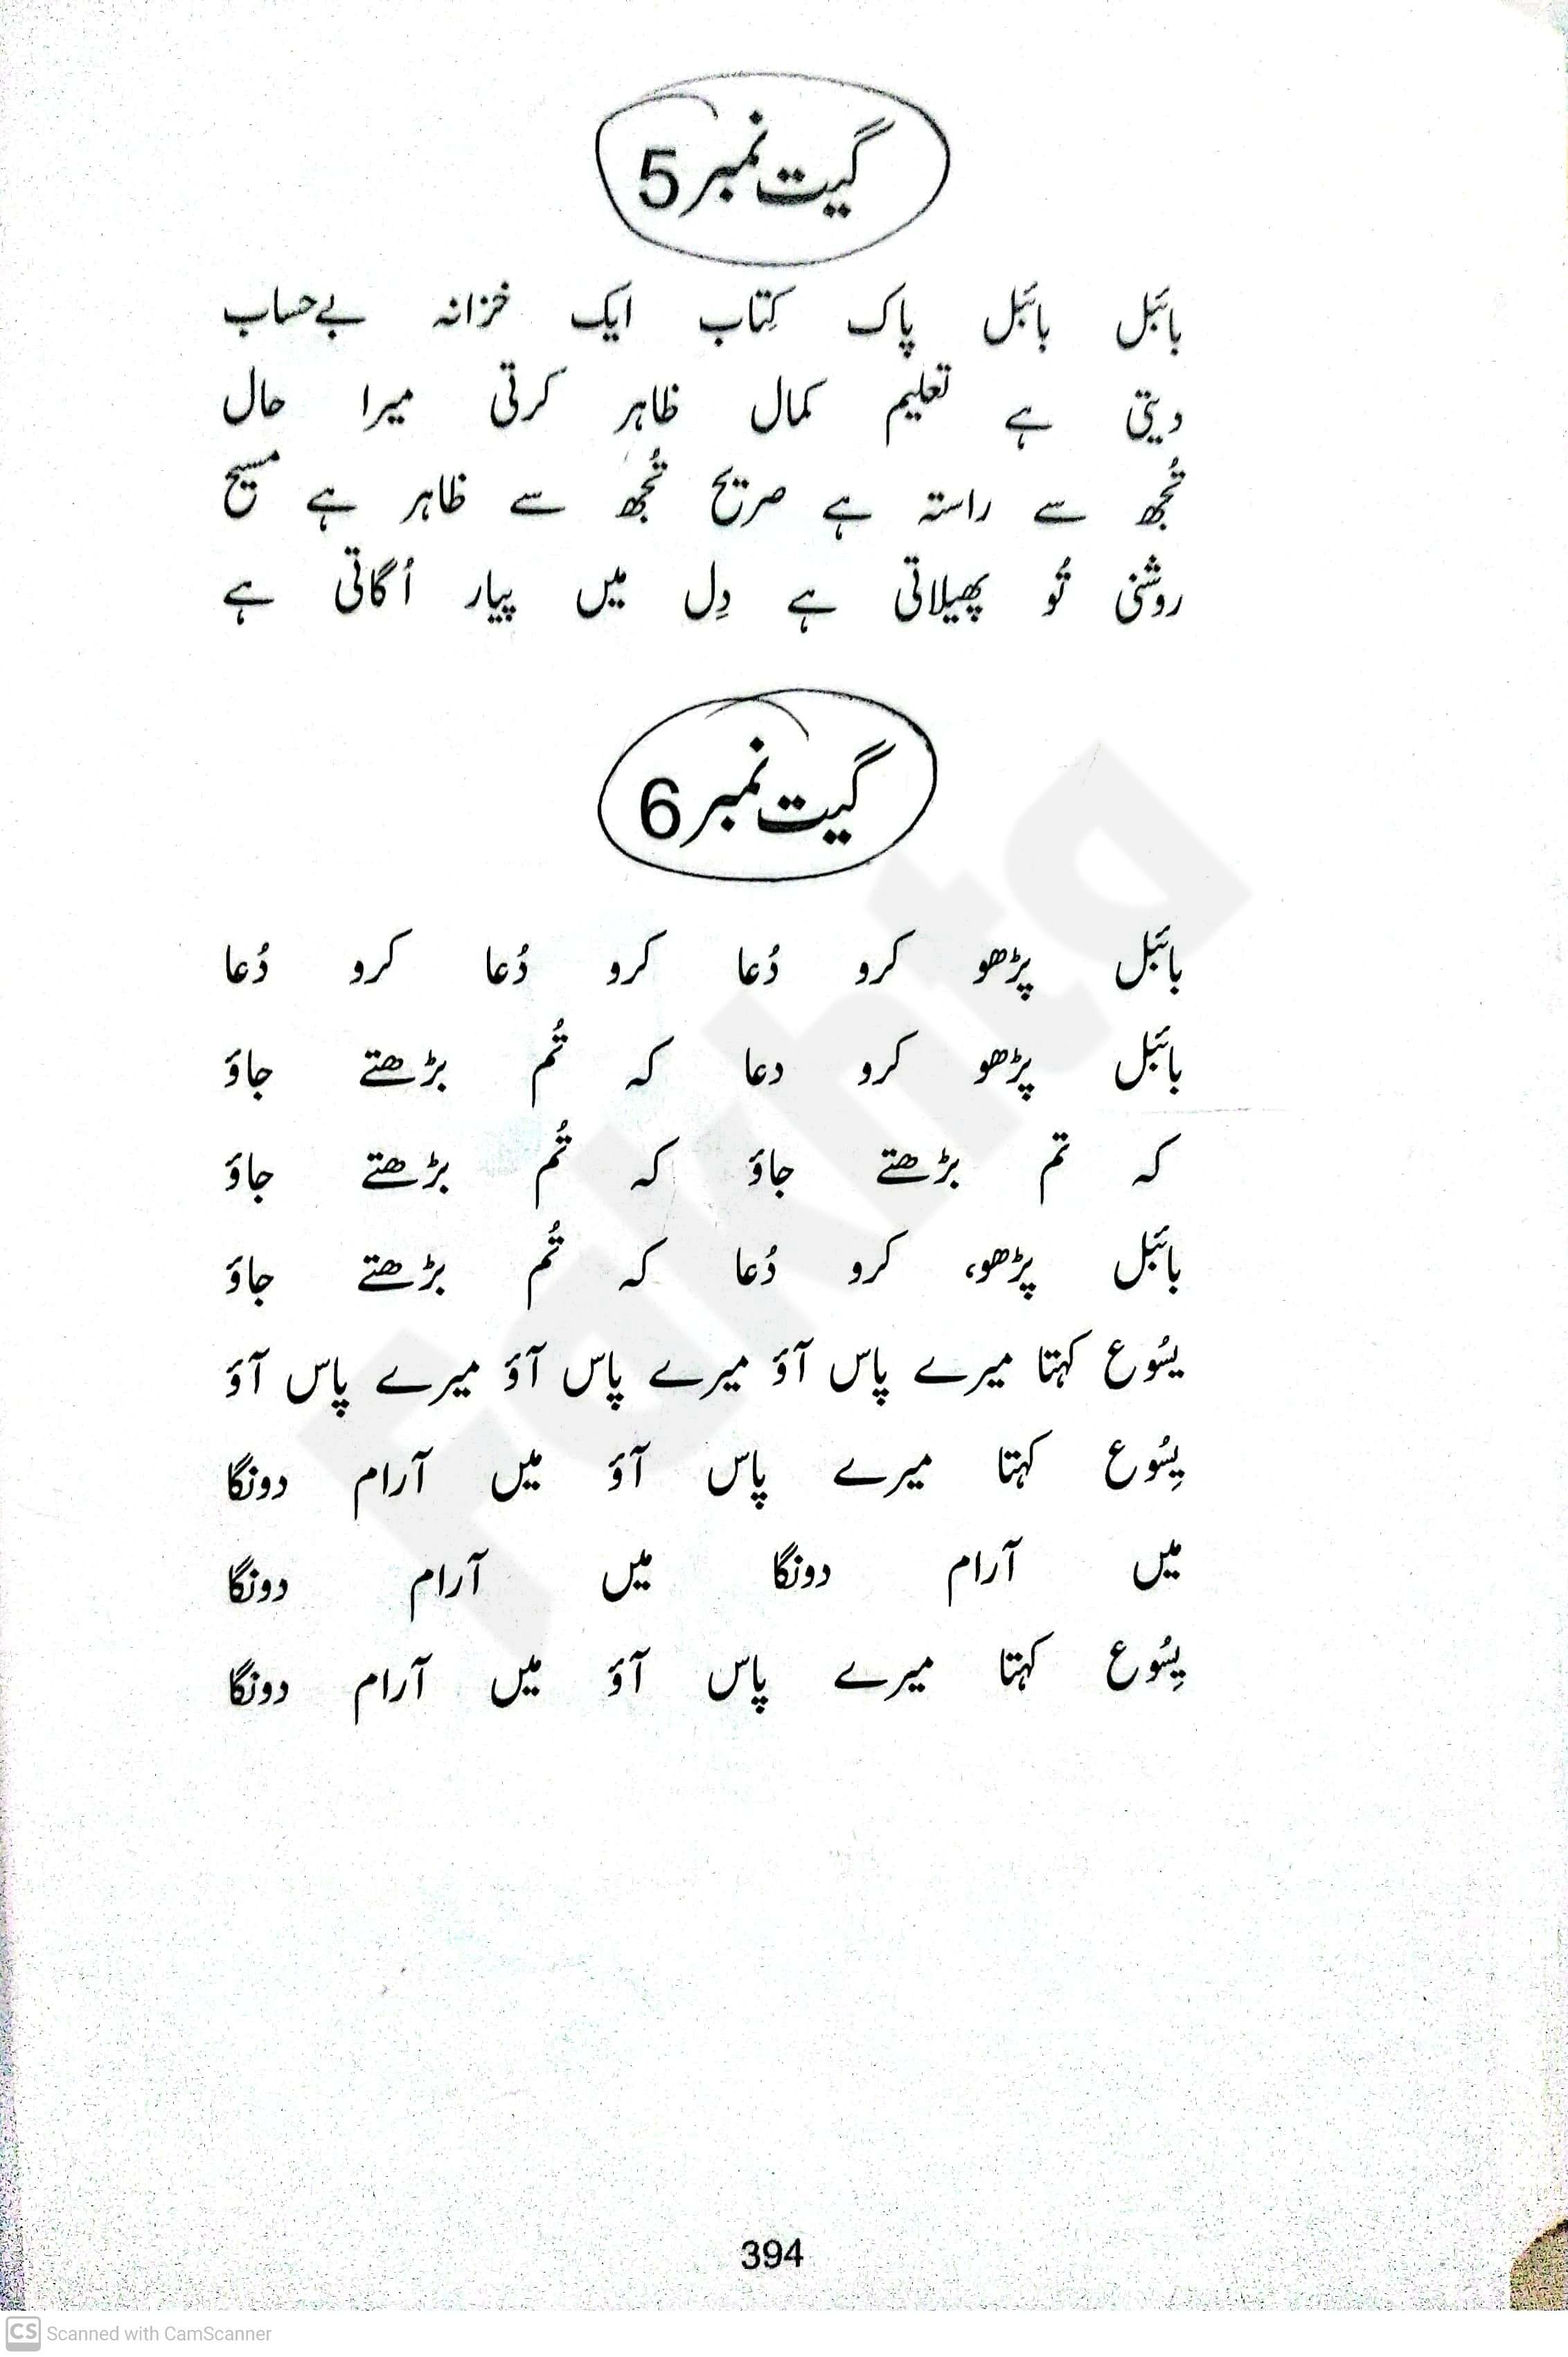 گیت نمبر 5
بائبل بائبل پاک کِتاب ایک خزانہ بےحساب
دیتی ہے تعلیم کمال ظاہر کرتی میرا حال
تُجھ سے راستہ ہے صریح تُجھ سے ظاہر ہے مسیح
روشنی تُو پھیلاتی ہے دِل میں پیار اُگاتی ہے
گیت نمبر 6
بائبل پڑھو کرو دُعا کرو دُعا کرو دُعا
بائبل پڑھو کرو دعا کہ تُم بڑھتے جاؤ
کہ تم بڑھتے جاؤ کہ تُم بڑھتے جاؤ
بائبل پڑھو، کرو دُعا کہ تُم بڑھتے جاؤ
یسُوع کہتا میرے پاس آؤ میرے پاس آؤ میرے پاس آؤ
یِسُوع کہتا میرے پاس آؤ میں آرام دونگا
میں آرام دونگا میں آرام دونگا
یِسُوع کہتا میرے پاس آؤ میں آرام دونگا
Fakhta
394
CS Scanned with CamScanner